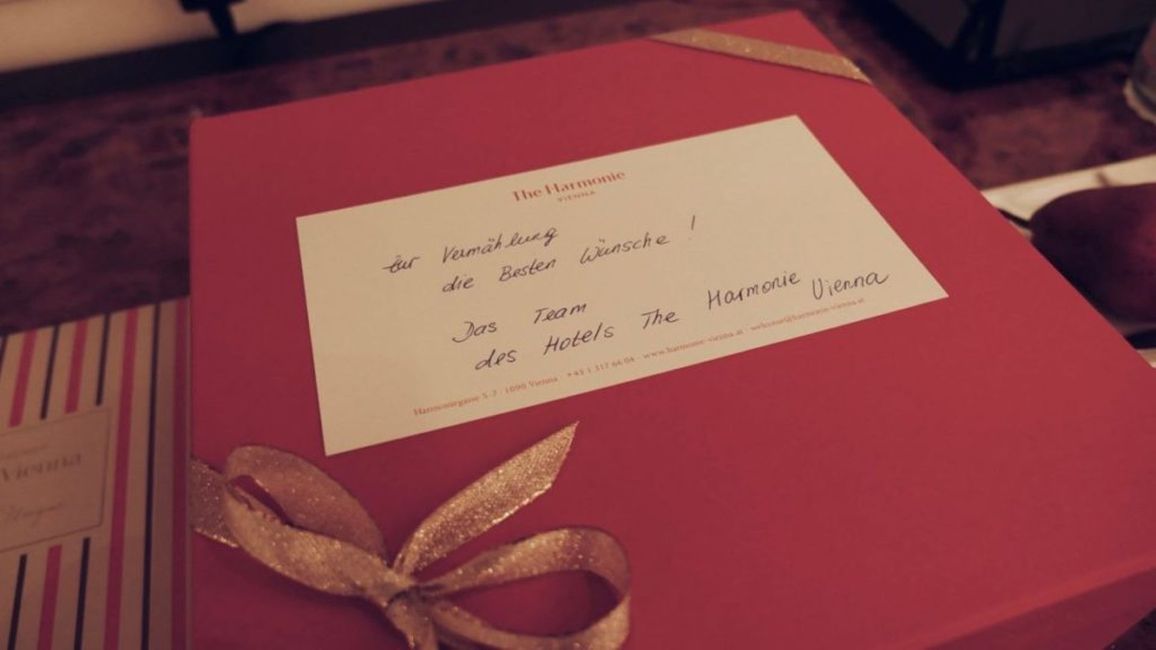 The Harmonie
VIENNA
zur Vermählung
die Besten Wünsche !
Das Team
des Hotels The Harmonie Vienna
Harmoniegasse 5-7 · 1090 Vienna · +43 1 317 66 04 · www.harmonie-vienna.at · welcome@harmonie-vienna.at
Vienna